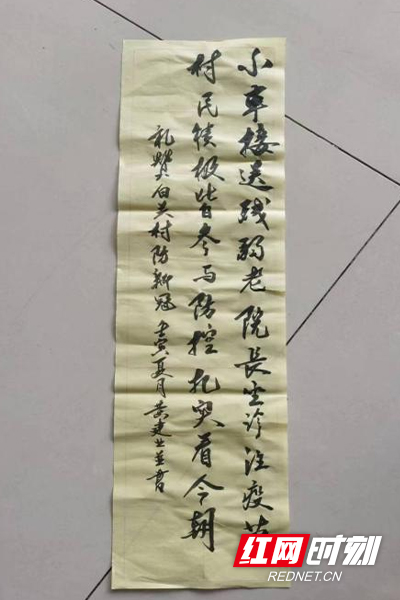 小车接送残弱老院長坐诊注疫苗
村民積极皆参与防控扎实看今朝
礼赞白关村防新冠 壬寅夏月黄建业並書
红网时刻
REDNET.CN